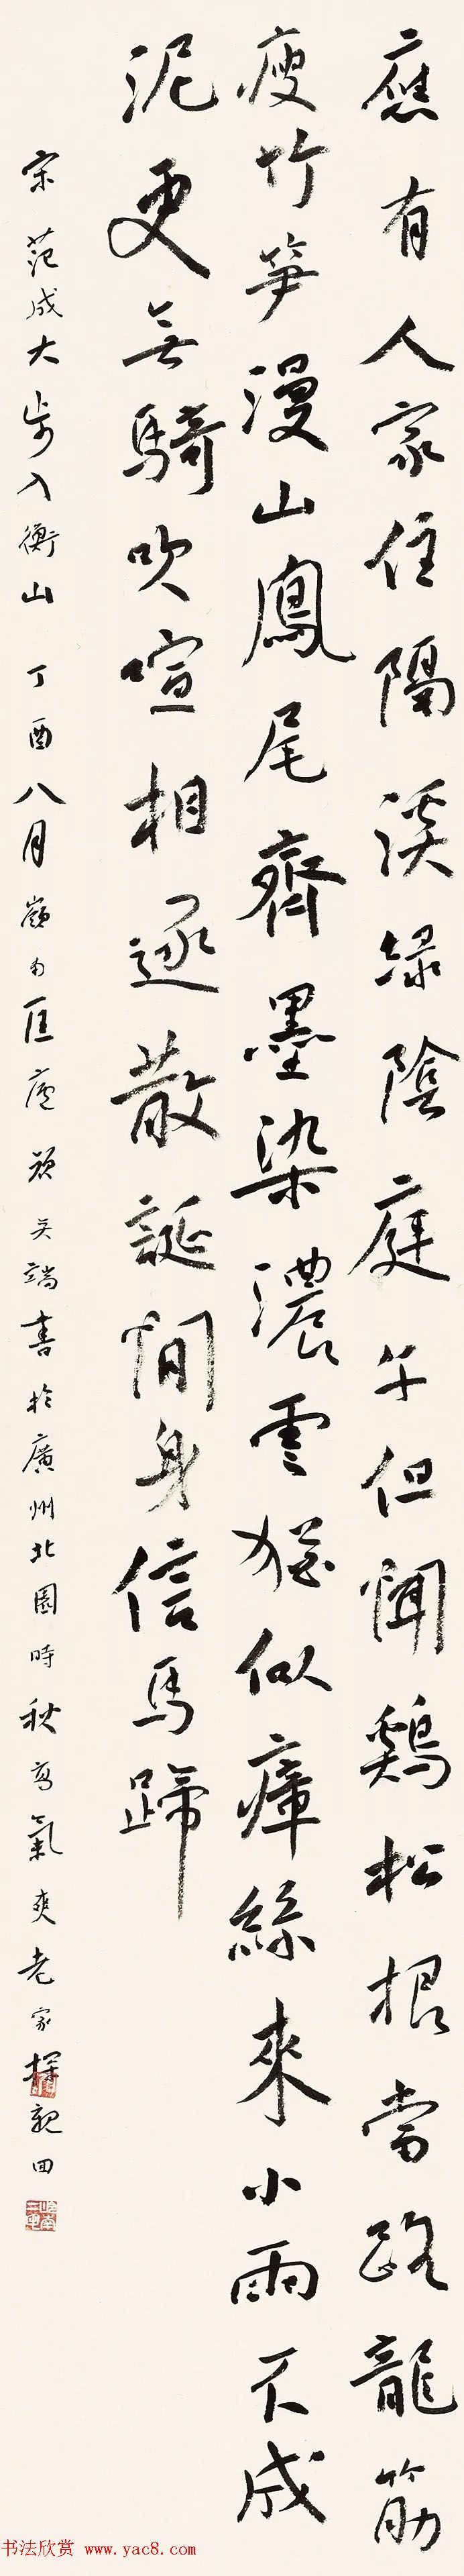 應有人家住隔溪綠陰庭午但聞鷄松根當路龍筋
瘦竹笋漫山鳳尾齊墨染濃雲猶似瘴絲來小雨不成
泥更無騎吹喧相逐散誕閒身信馬蹄
宋范成大步入衡山 丁酉八月嶺南匡廬 頑夫端書於廣州北園時秋高氣爽老家探親回
书法欣赏 www.yac8.com